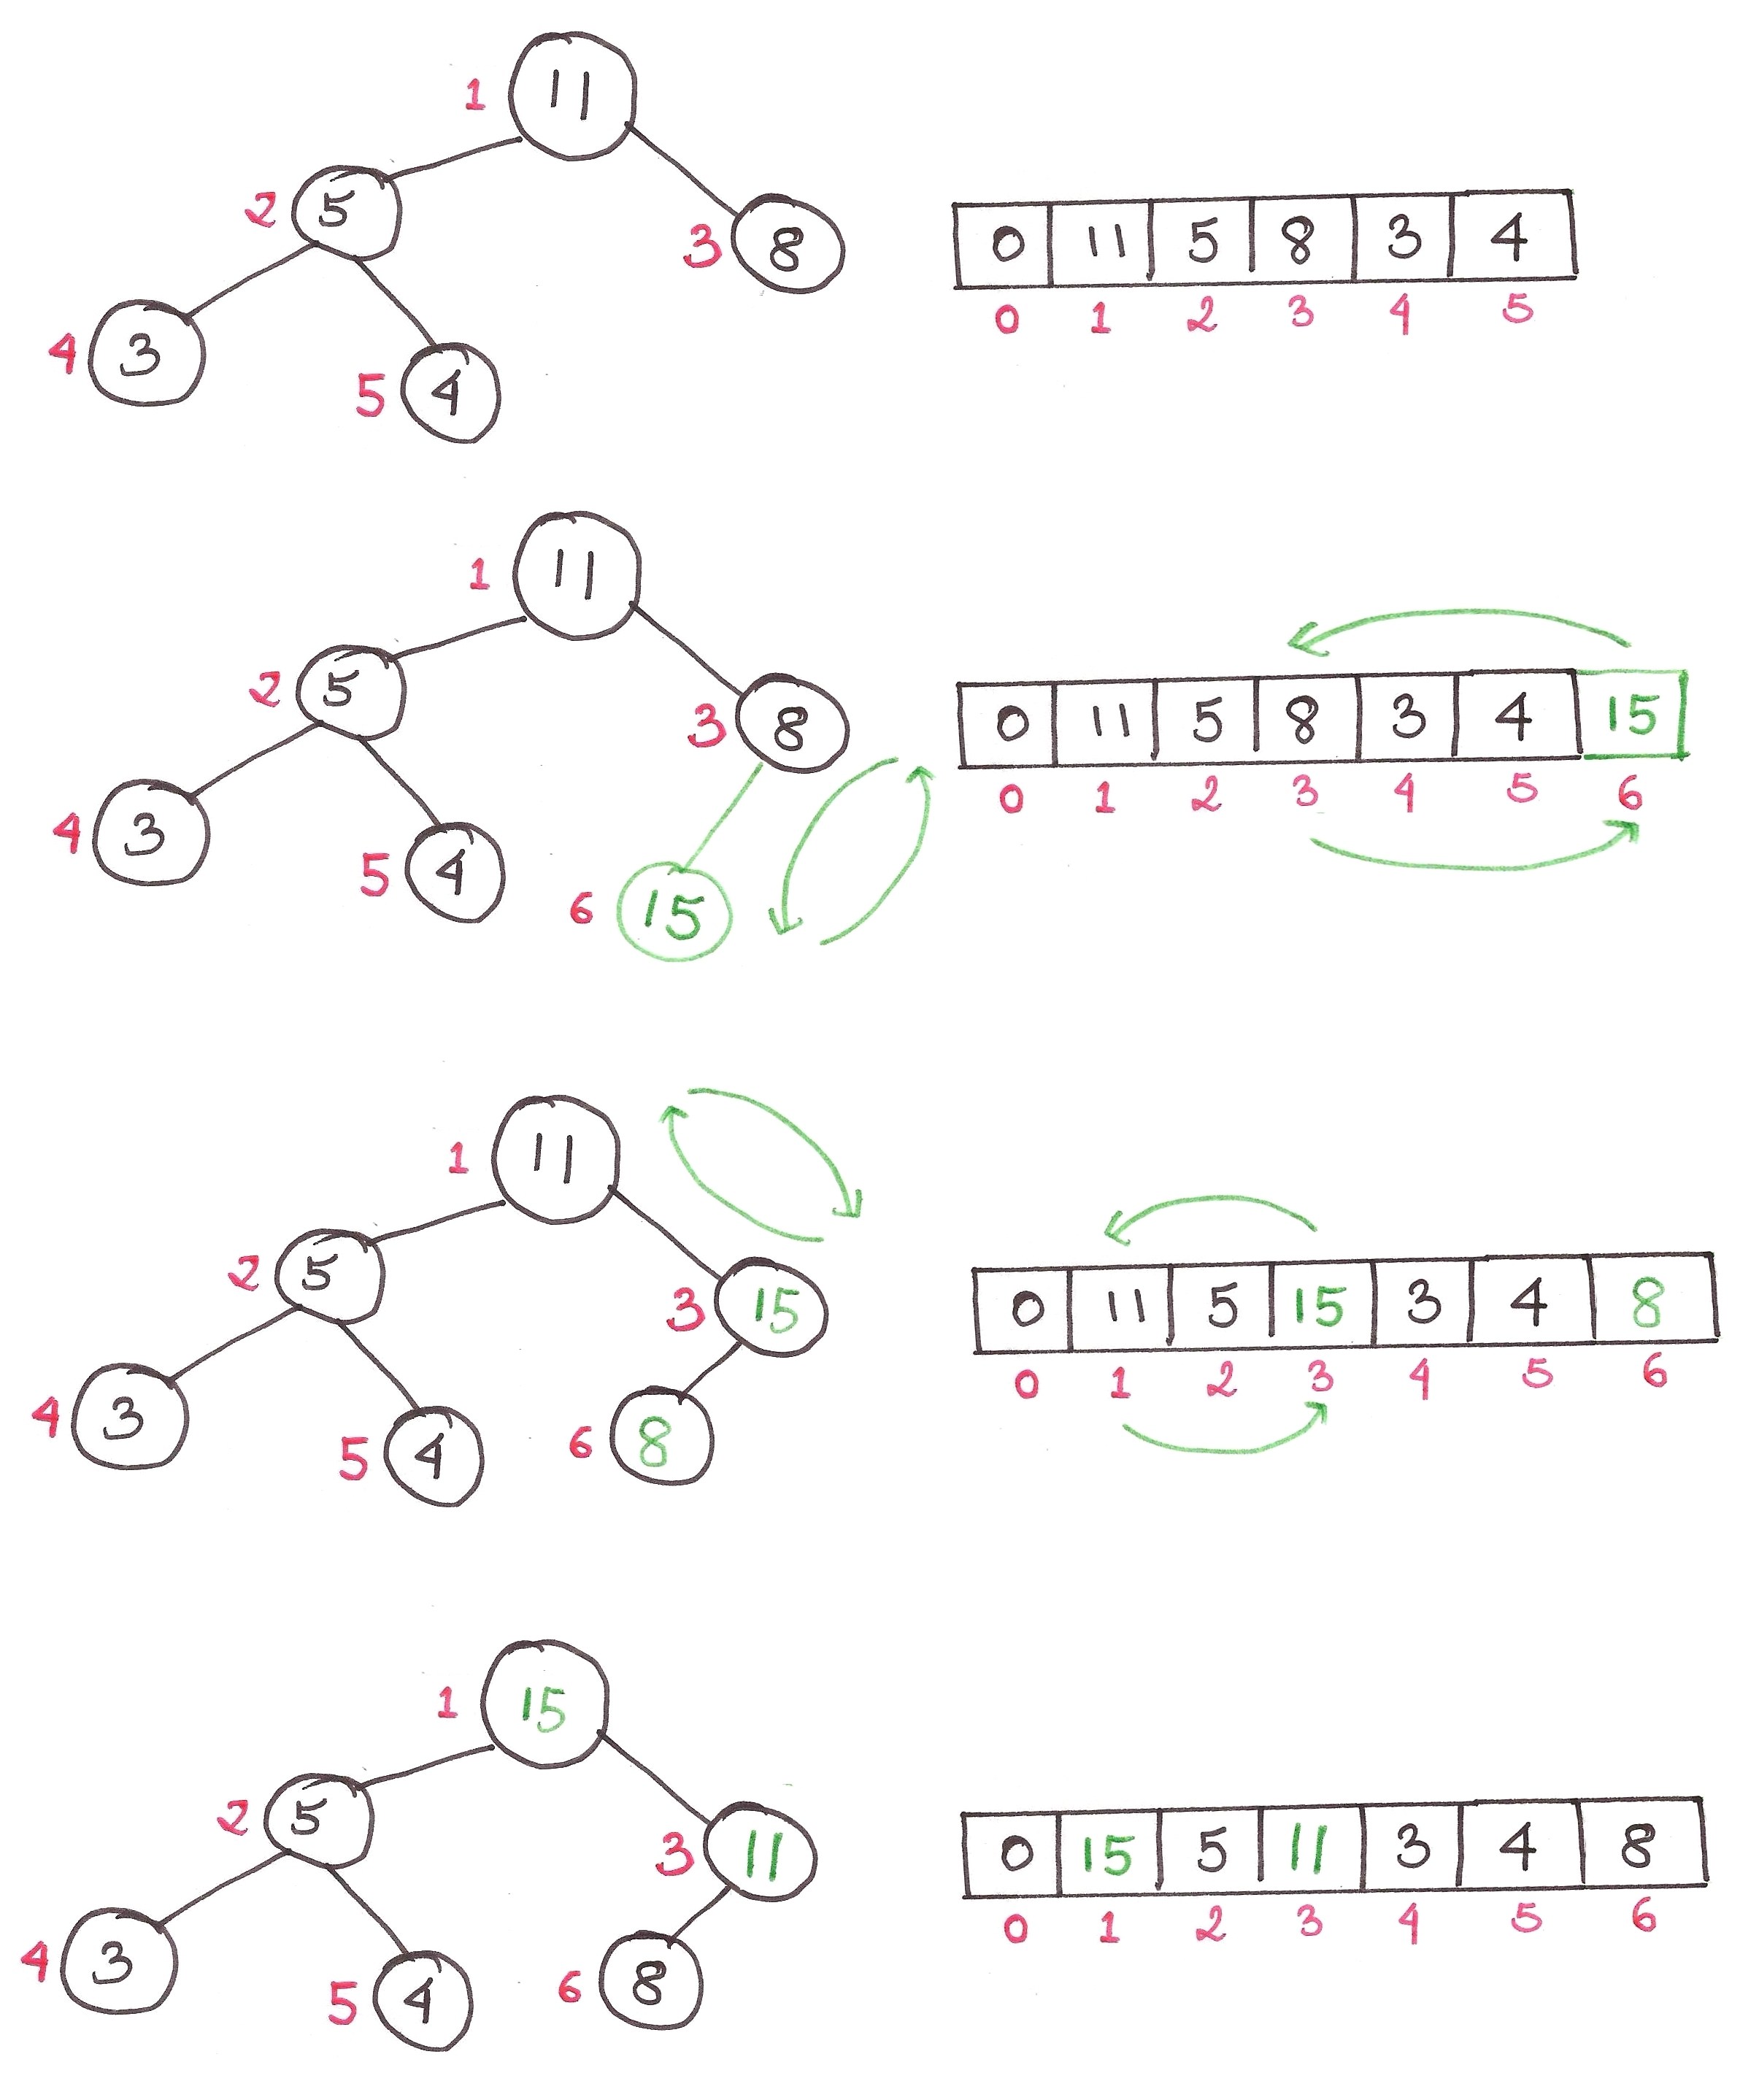 1 11
2 5
3 8
4 3
5 4
0 11 5 8 3 4
0 1 2 3 4 5
1 11
2 5
3 8
4 3
5 4
6 15
0 11 5 8 3 4 15
0 1 2 3 4 5 6
1 11
2 5
3 15
4 3
5 4
6 8
0 11 5 15 3 4 8
0 1 2 3 4 5 6
1 15
2 5
3 11
4 3
5 4
6 8
0 15 5 11 3 4 8
0 1 2 3 4 5 6